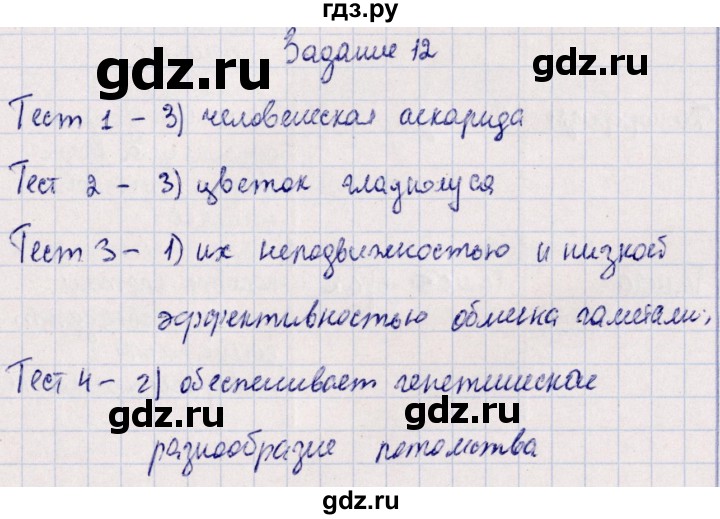 гдз.ру
Задание 12
gdz.ru gdz.ru
Тест 1 - 3) человеческая аскарида
Тест 2 - 3) цветок гладиолуса
Тест 3 - 1) их неподвижностью и низкой
эффективностью обмена гаметами,
Тест 4 - 2) обеспечивает генетическое
gdz.ru gdz.ru
разнообразие потомства
gdz.ru